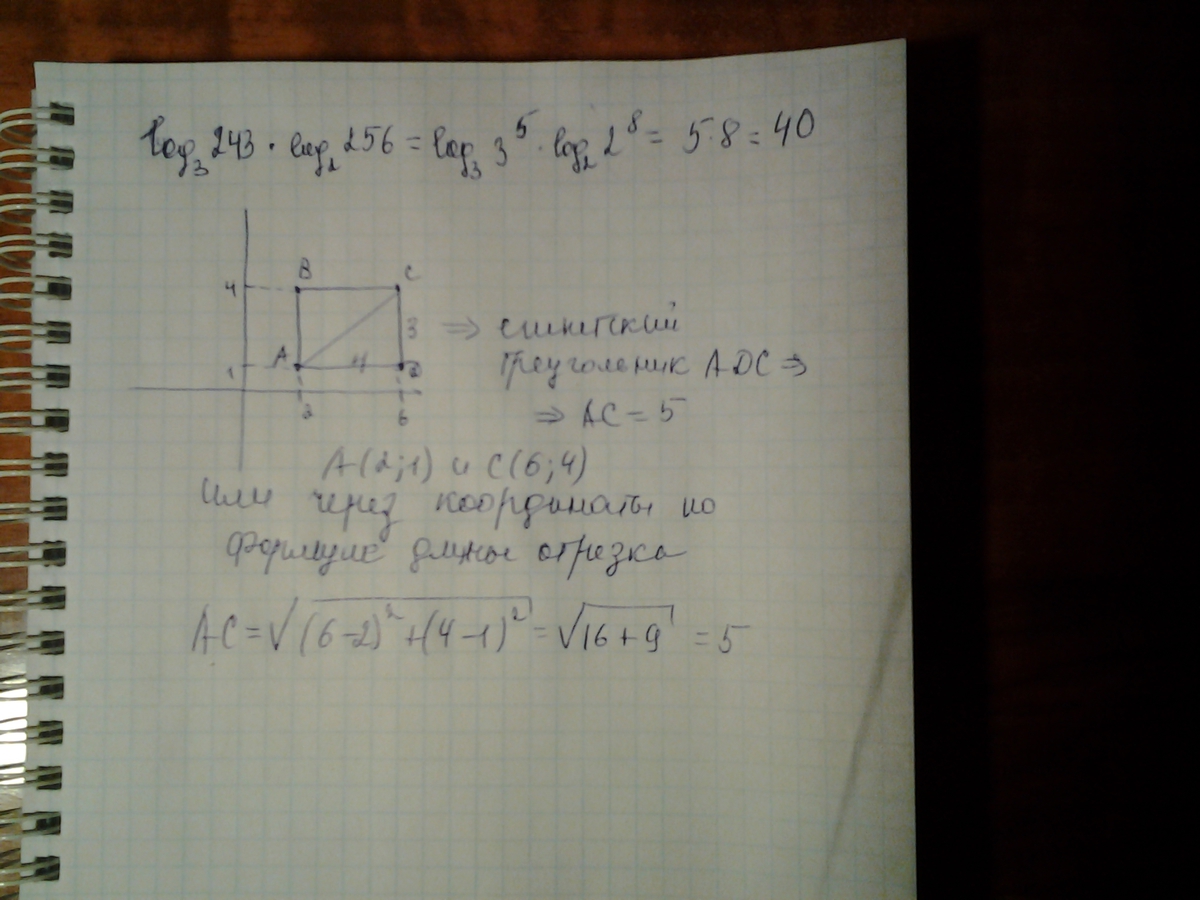 log₃243 · log₂256 = log₃3⁵ · log₂2⁸ = 5·8 = 40
B C
4
3 ⇒ египетский
A 4 D треуголеник ADC ⇒
1
2 6 ⇒ AC = 5
A(2;1) и C(6;4)
или через координаты по
формуле длины отрезка
AC = √((6-2)² + (4-1)²) = √(16+9) = 5